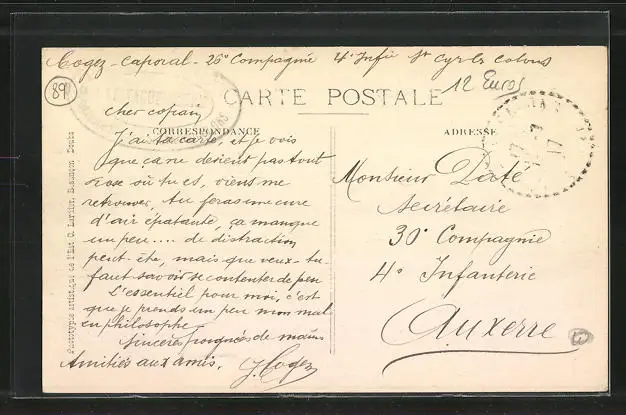 Cogez - Caporal - 26e Compagnie 4e Infie St Cyr les Colons
89
12 Euros
CARTE POSTALE
cher copain
CORRESPONDANCE
ADRESSE
J'ai ta carte, et je vois
que ça ne devient pas tout
rose où tu es, viens me
retrouver, tu feras une cure
d'air épatante, ça manque
un peu.... de distraction
peut-être, mais que veux-tu
faut savoir se contenter de peu
L'essentiel pour moi, c'est
que je prends un peu mon mal
en philosophe
Sincères poignées de mains
Amitiés aux amis. J. Cogez
Monsieur
Secrétaire
30e Compagnie
4e Infanterie
Auxerre
17
17
Phototypie artistique de l'Est C. Lardier, Besançon Doubs